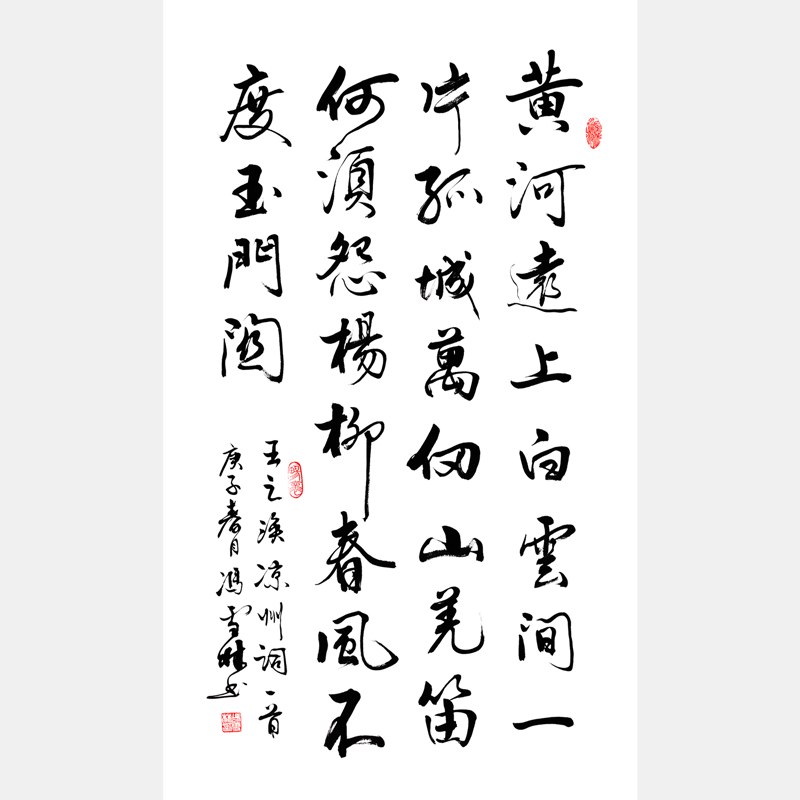 黄河遠上白雲間一
片孤城萬仞山羌笛
何須怨楊柳春風不
度玉門関
王之涣凉州詞一首
庚子春月馮雪林书